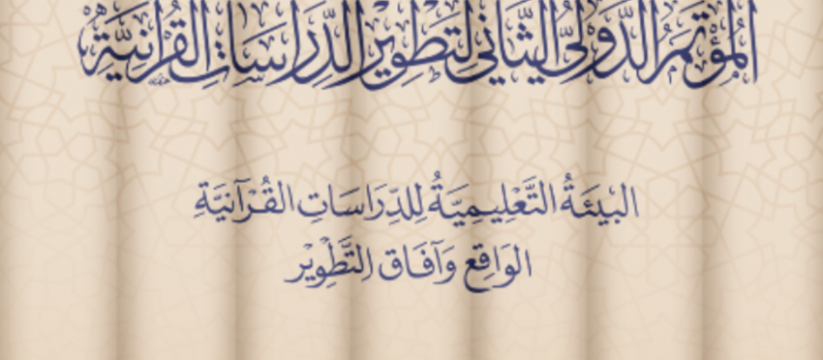 المُؤْتَمَرُ الدَّوْلِيُّ الثَّانِي لِتَطْوِيرِ الدِّرَاسَاتِ القُرْآنِيَّةِ
البِيئَةُ التَّعْلِيمِيَّةُ لِلدِّرَاسَاتِ القُرْآنِيَّةِ
الوَاقِع وَآفَاق التَّطْوِير